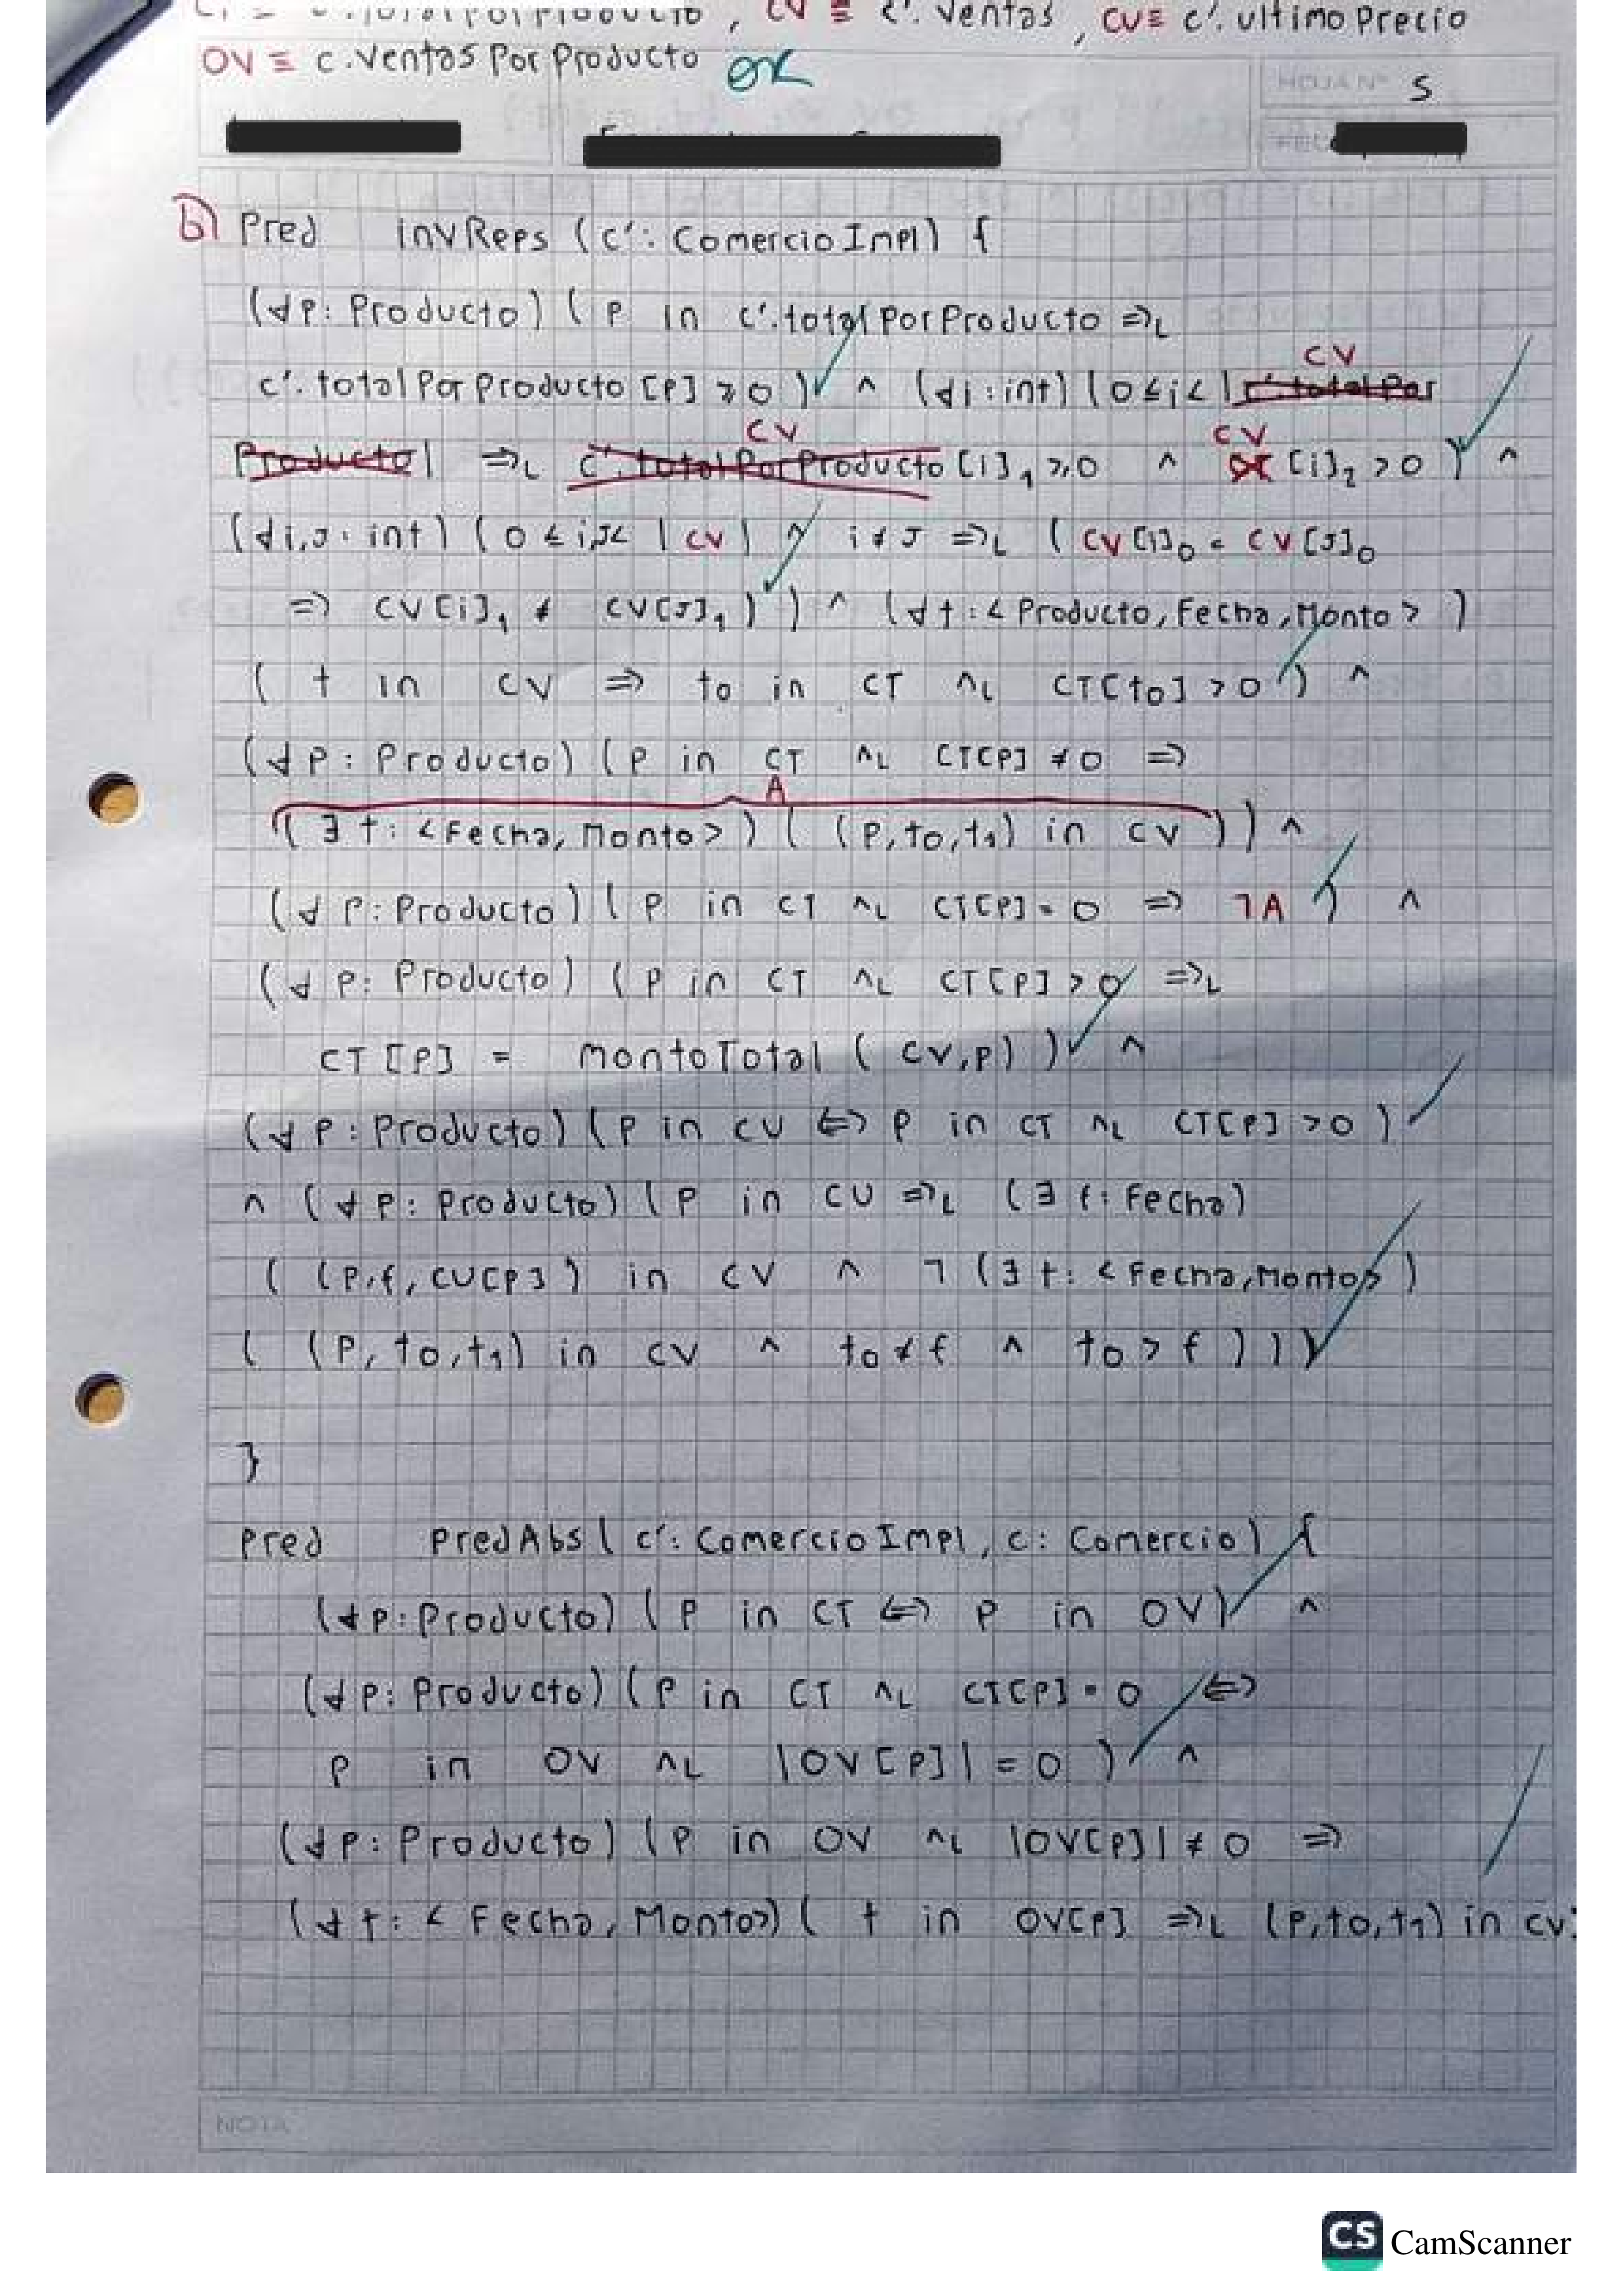 CT ≡ c'.totalPorProducto, CV ≡ c'.ventas, CU ≡ c'.ultimoPrecio
OV ≡ c.ventasPorProducto OK
HOJA Nº 5
b) Pred invReps (c': ComercioImpl) {
(∀p: Producto) ( p in c'.totalPorProducto ⇒L
c'.totalPorProducto [p] ≥ 0 ) ∧ (∀i: int) ( 0 ≤ i < | c'.totalPor CV
Producto | ⇒L c'.totalPorProducto CV [i]₁ ≥ 0 ∧ CV [i]₂ > 0 ) ∧
(∀i,J: int) ( 0 ≤ i,J < | CV | ∧ i ≠ J ⇒L ( CV[i]₀ = CV[J]₀
⇒ CV[i]₁ ≠ CV[J]₁ ) ) ∧ (∀t: < Producto, Fecha, Monto > )
( t in CV ⇒ t₀ in CT ∧L CT[t₀] > 0 ) ∧
(∀p: Producto) ( p in CT ∧L CT[p] ≠ 0 ⇒
A
( ∃ t: < Fecha, Monto > ) ( (p, t₀, t₁) in CV ) ) ∧
(∀p: Producto) ( p in CT ∧L CT[p] = 0 ⇒ ¬A ) ∧
(∀p: Producto) ( p in CT ∧L CT[p] > 0 ⇒L
CT[p] = montoTotal ( CV, p ) ) ∧
(∀p: Producto) ( p in CU ⇔ p in CT ∧L CT[p] > 0 )
∧ (∀p: Producto) ( p in CU ⇒L ( ∃ f: Fecha)
( (p, f, CU[p]) in CV ∧ ¬ ( ∃ t: < Fecha, Monto > )
( (p, t₀, t₁) in CV ∧ t₀ ≠ f ∧ t₀ > f ) ) )
}
Pred PredAbs ( c': ComercioImpl, c: Comercio) {
(∀p: Producto) ( p in CT ⇔ p in OV) ∧
(∀p: Producto) ( p in CT ∧L CT[p] = 0 ⇔
p in OV ∧L |OV[p]| = 0 ) ∧
(∀p: Producto) ( p in OV ∧L |OV[p]| ≠ 0 ⇒
(∀t: < Fecha, Monto>) ( t in OV[p] ⇒L (p, t₀, t₁) in CV)
NOTA
CS CamScanner